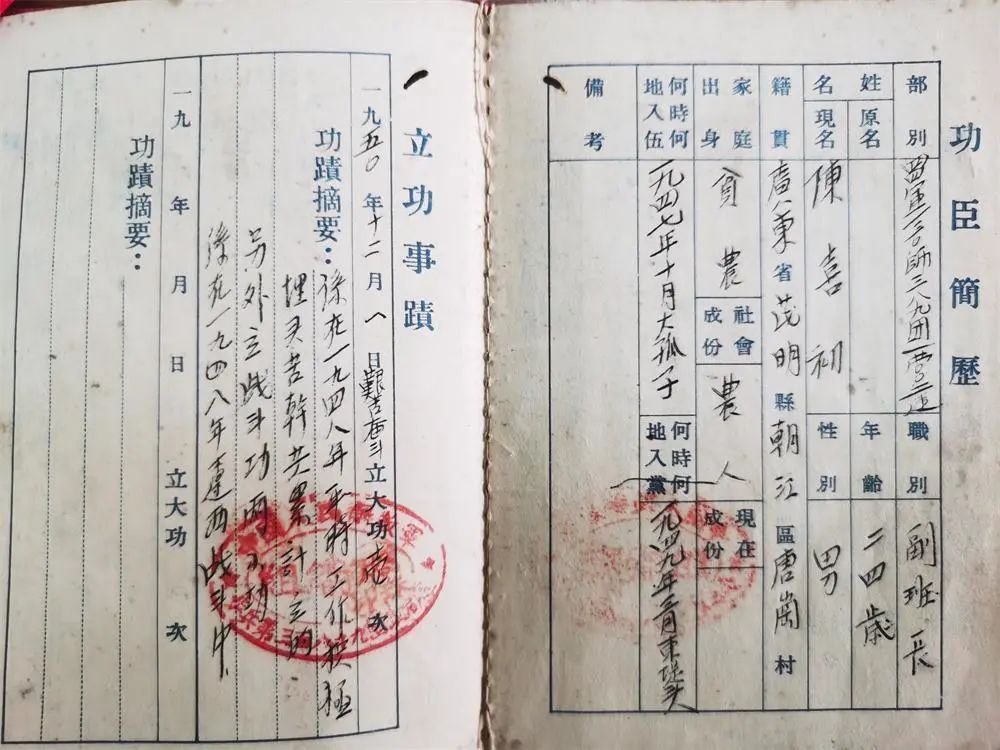 功臣簡歷
部別 四軍一三〇師三八九团一营二連 職別 副班長
姓名 原名 年齡 二四歲
現名 陳喜初 性別 男
籍貫 廣東省茂明縣朝江區唐崗村
家庭出身 貧農 社會成份 農人 現在成份
何時何地入伍 一九四七年十月大孤子 何時何地入黨 一九四九年
備考
立功事蹟
一九五〇年十二月八日艱苦奋斗立大功壹次
功蹟摘要：係在一九四八年平時工作積極
埋头苦幹共累計立的
另外立战斗功两小功
係在一九四八年遼西战斗中
一九 年 月 日 立大功 次
功蹟摘要：